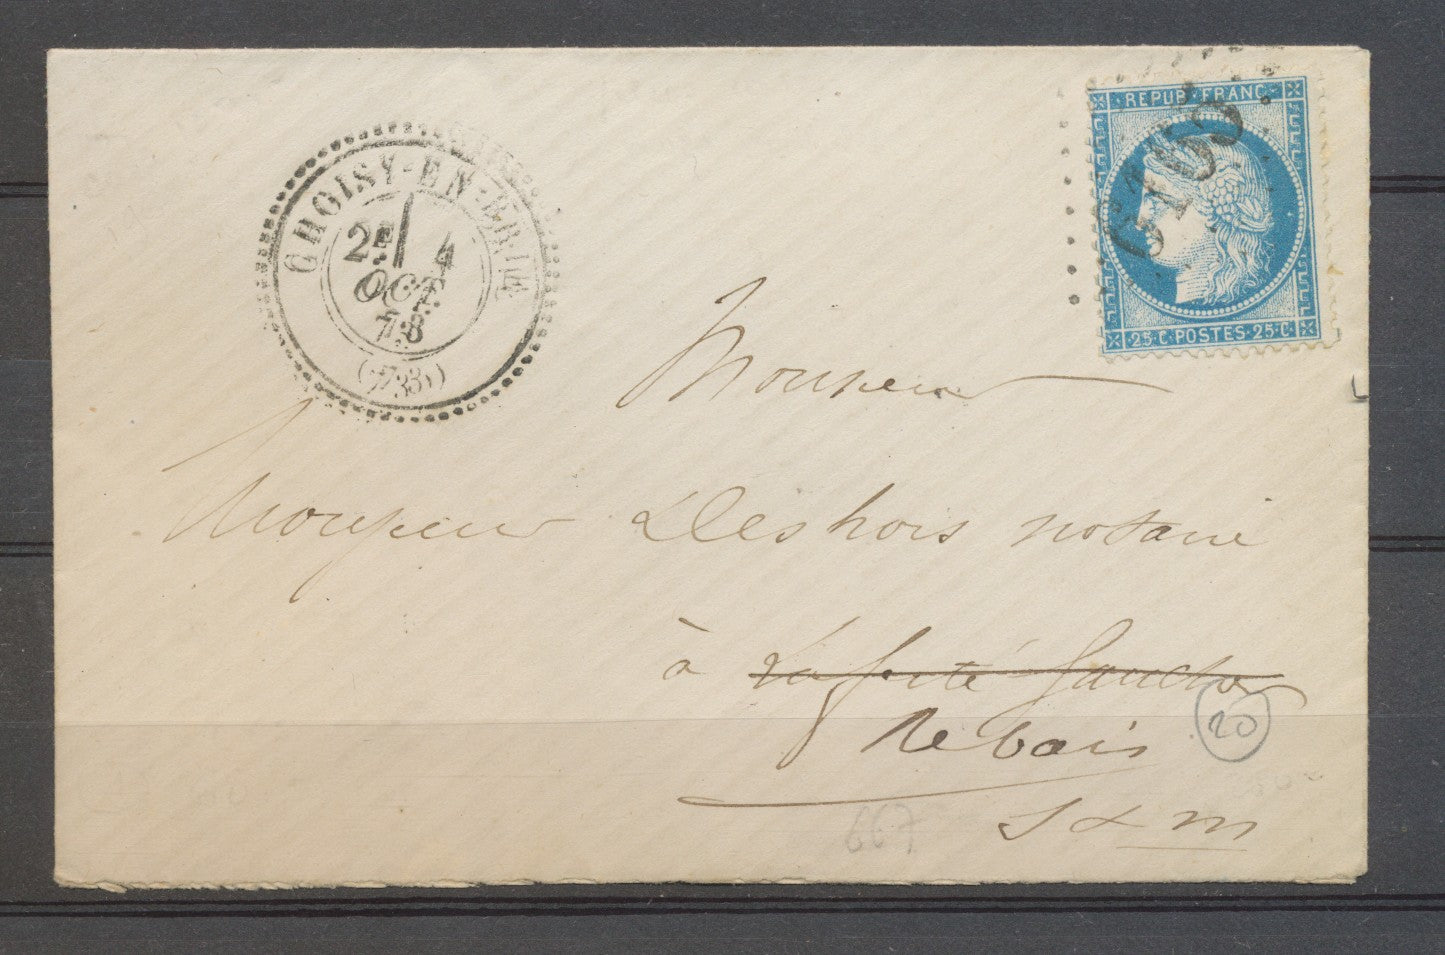 REPUB · FRANC
6165
25·C·POSTES·25·C
CHOISY-EN-BRIE
2E 4
OCT.
73
(73)
Monsieur
Monsieur Deshois notaire
à Laferté Gaucher
Rebais
20
S & M
667